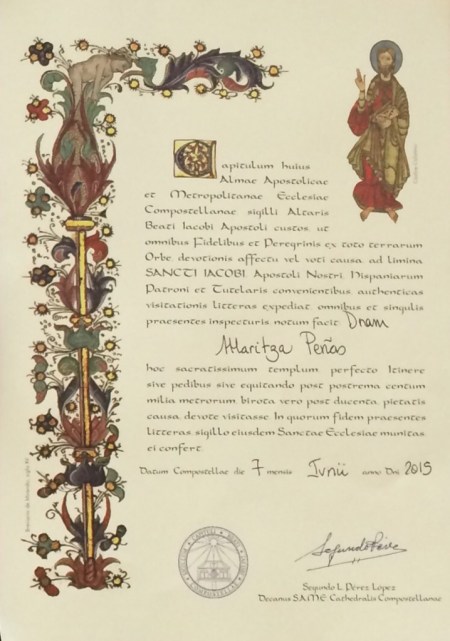 Capitulum huius
Almae Apostolicae
et Metropolitanae Ecclesiae
Compostellanae sigilli Altaris
Beati Iacobi Apostoli custos, ut
omnibus Fidelibus et Peregrinis ex toto terrarum
Orbe, devotionis affectu vel voti causa, ad limina
SANCTI IACOBI, Apostoli Nostri, Hispaniarum
Patroni et Tutelaris convenientibus, authenticas
visitationis litteras expediat, omnibus et singulis
praesentes inspecturis, notum facit: Dnam
Maritza Peñas
hoc sacratissimum templum, perfecto Itinere
sive pedibus sive equitando post postrema centum
milia metrorum, birota vero post ducenta, pietatis
causa, devote visitasse. In quorum fidem praesentes
litteras, sigillo eiusdem Sanctae Ecclesiae munitas,
ei confert.
Datum Compostellae die 7 mensis Ivnii anno Dni 2015
Segundo L. Pérez López
Decanus S.A.M.E. Cathedralis Compostellanae